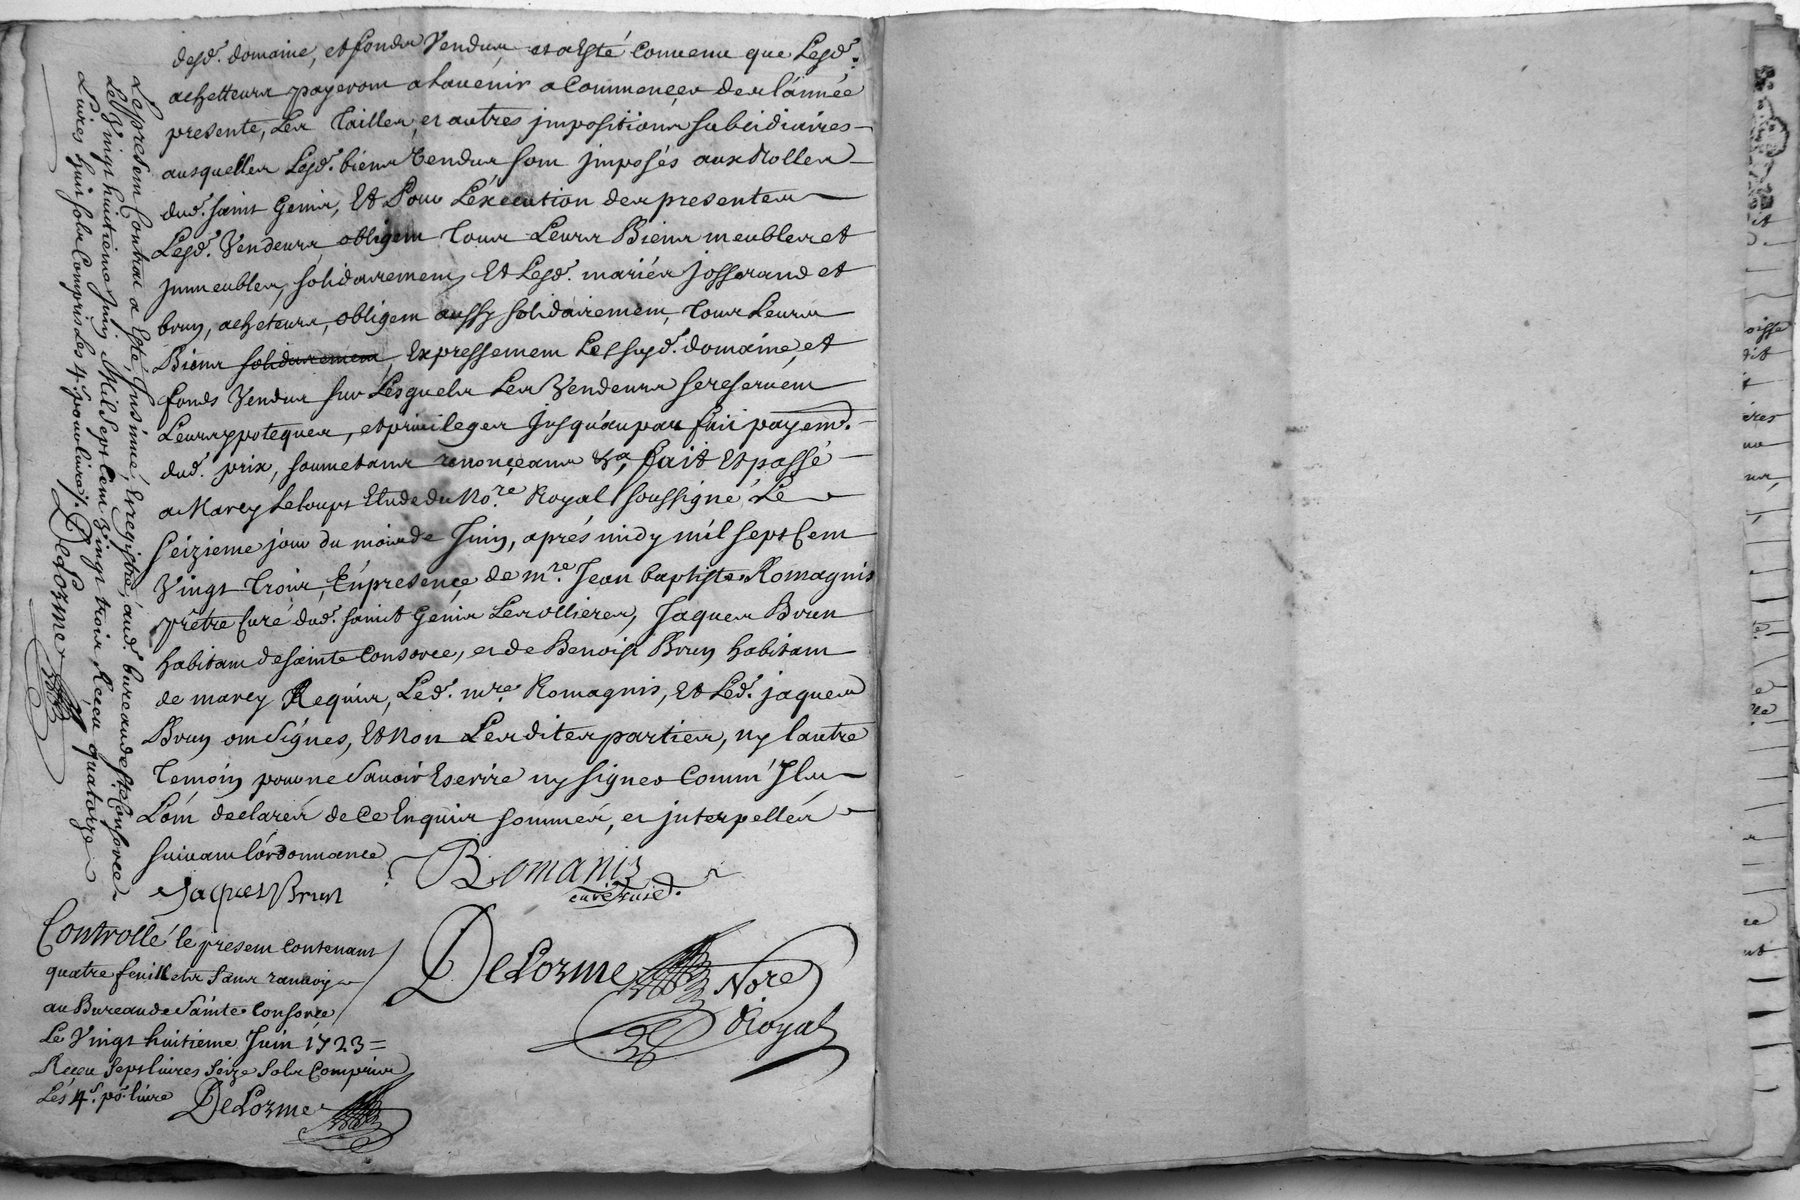 desd. domaine, et fonds Vendus, et a Esté Convenu que Lesd.
achetteurs payeront a Lavenir a Commencer des l'année
presente, Les Tailles et autres jmpositions subcidiaires
ausquelles Lesd. biens Vendus sont jmposés aux Rolles
dud. saint Genis, Et Pour L'éxecution des presentes
Lesd. Vendeurs obligent tous Leurs Biens meubles et
jmmeubles, solidairement, Et Lesd. mariés josserand et
brun, acheteurs, obligent aussy solidairement, Tous Leurs
Biens solidairement, Expressement Lessusd. domaine, et
fonds Vendus sur Lesquels Les Vendeurs se reservent
Leurs ypoteques, et privileges Jusqu'au parfait payemt.
dud. prix, soumetans renonçeans &a, fait Et passé
a Marcy Leloups Etude du No.re Royal soussigné Le
seizieme jour du mois de Juin, aprés midy mil sept Cent
Vingt Trois, En presence de m.re Jean baptiste Romagnis
prêtre Curé dud. saint Genis Les ollieres, Jaques Brun
habitant de sainte Consorce, et de Benoist Brun habitant
de marcy Requis, Led. m.re Romagnis, Et Led. jaques
Brun ont signés, Et Non Les dites parties, ny l'autre
Temoin pour ne savoir Escrire ny signer Comm' Ils
L'ont declarés de Ce Enquis sommés, et jnterpellés
suivant l'ordonnance
Romanis
curé susd.
Jaques Brun
DeLorme Nore
Royal
Controllé le present Contenant
quatre feuillets sans renvoy
au Bureau de Sainte Consorce
Le Vingt huitieme Juin 1723 =
Receu Sept livres Seize Sols Compris
Les 4s. po. livre
DeLorme
Le present Contrat a Esté, Insinué, Enregistré, aud. bureau de Ste Consorce
Le Vingt huictieme Juin Mil Sept Cent Vingt trois, Receu quatorze
Livres huit sols Compris Les 4s pour livre. DeLorme